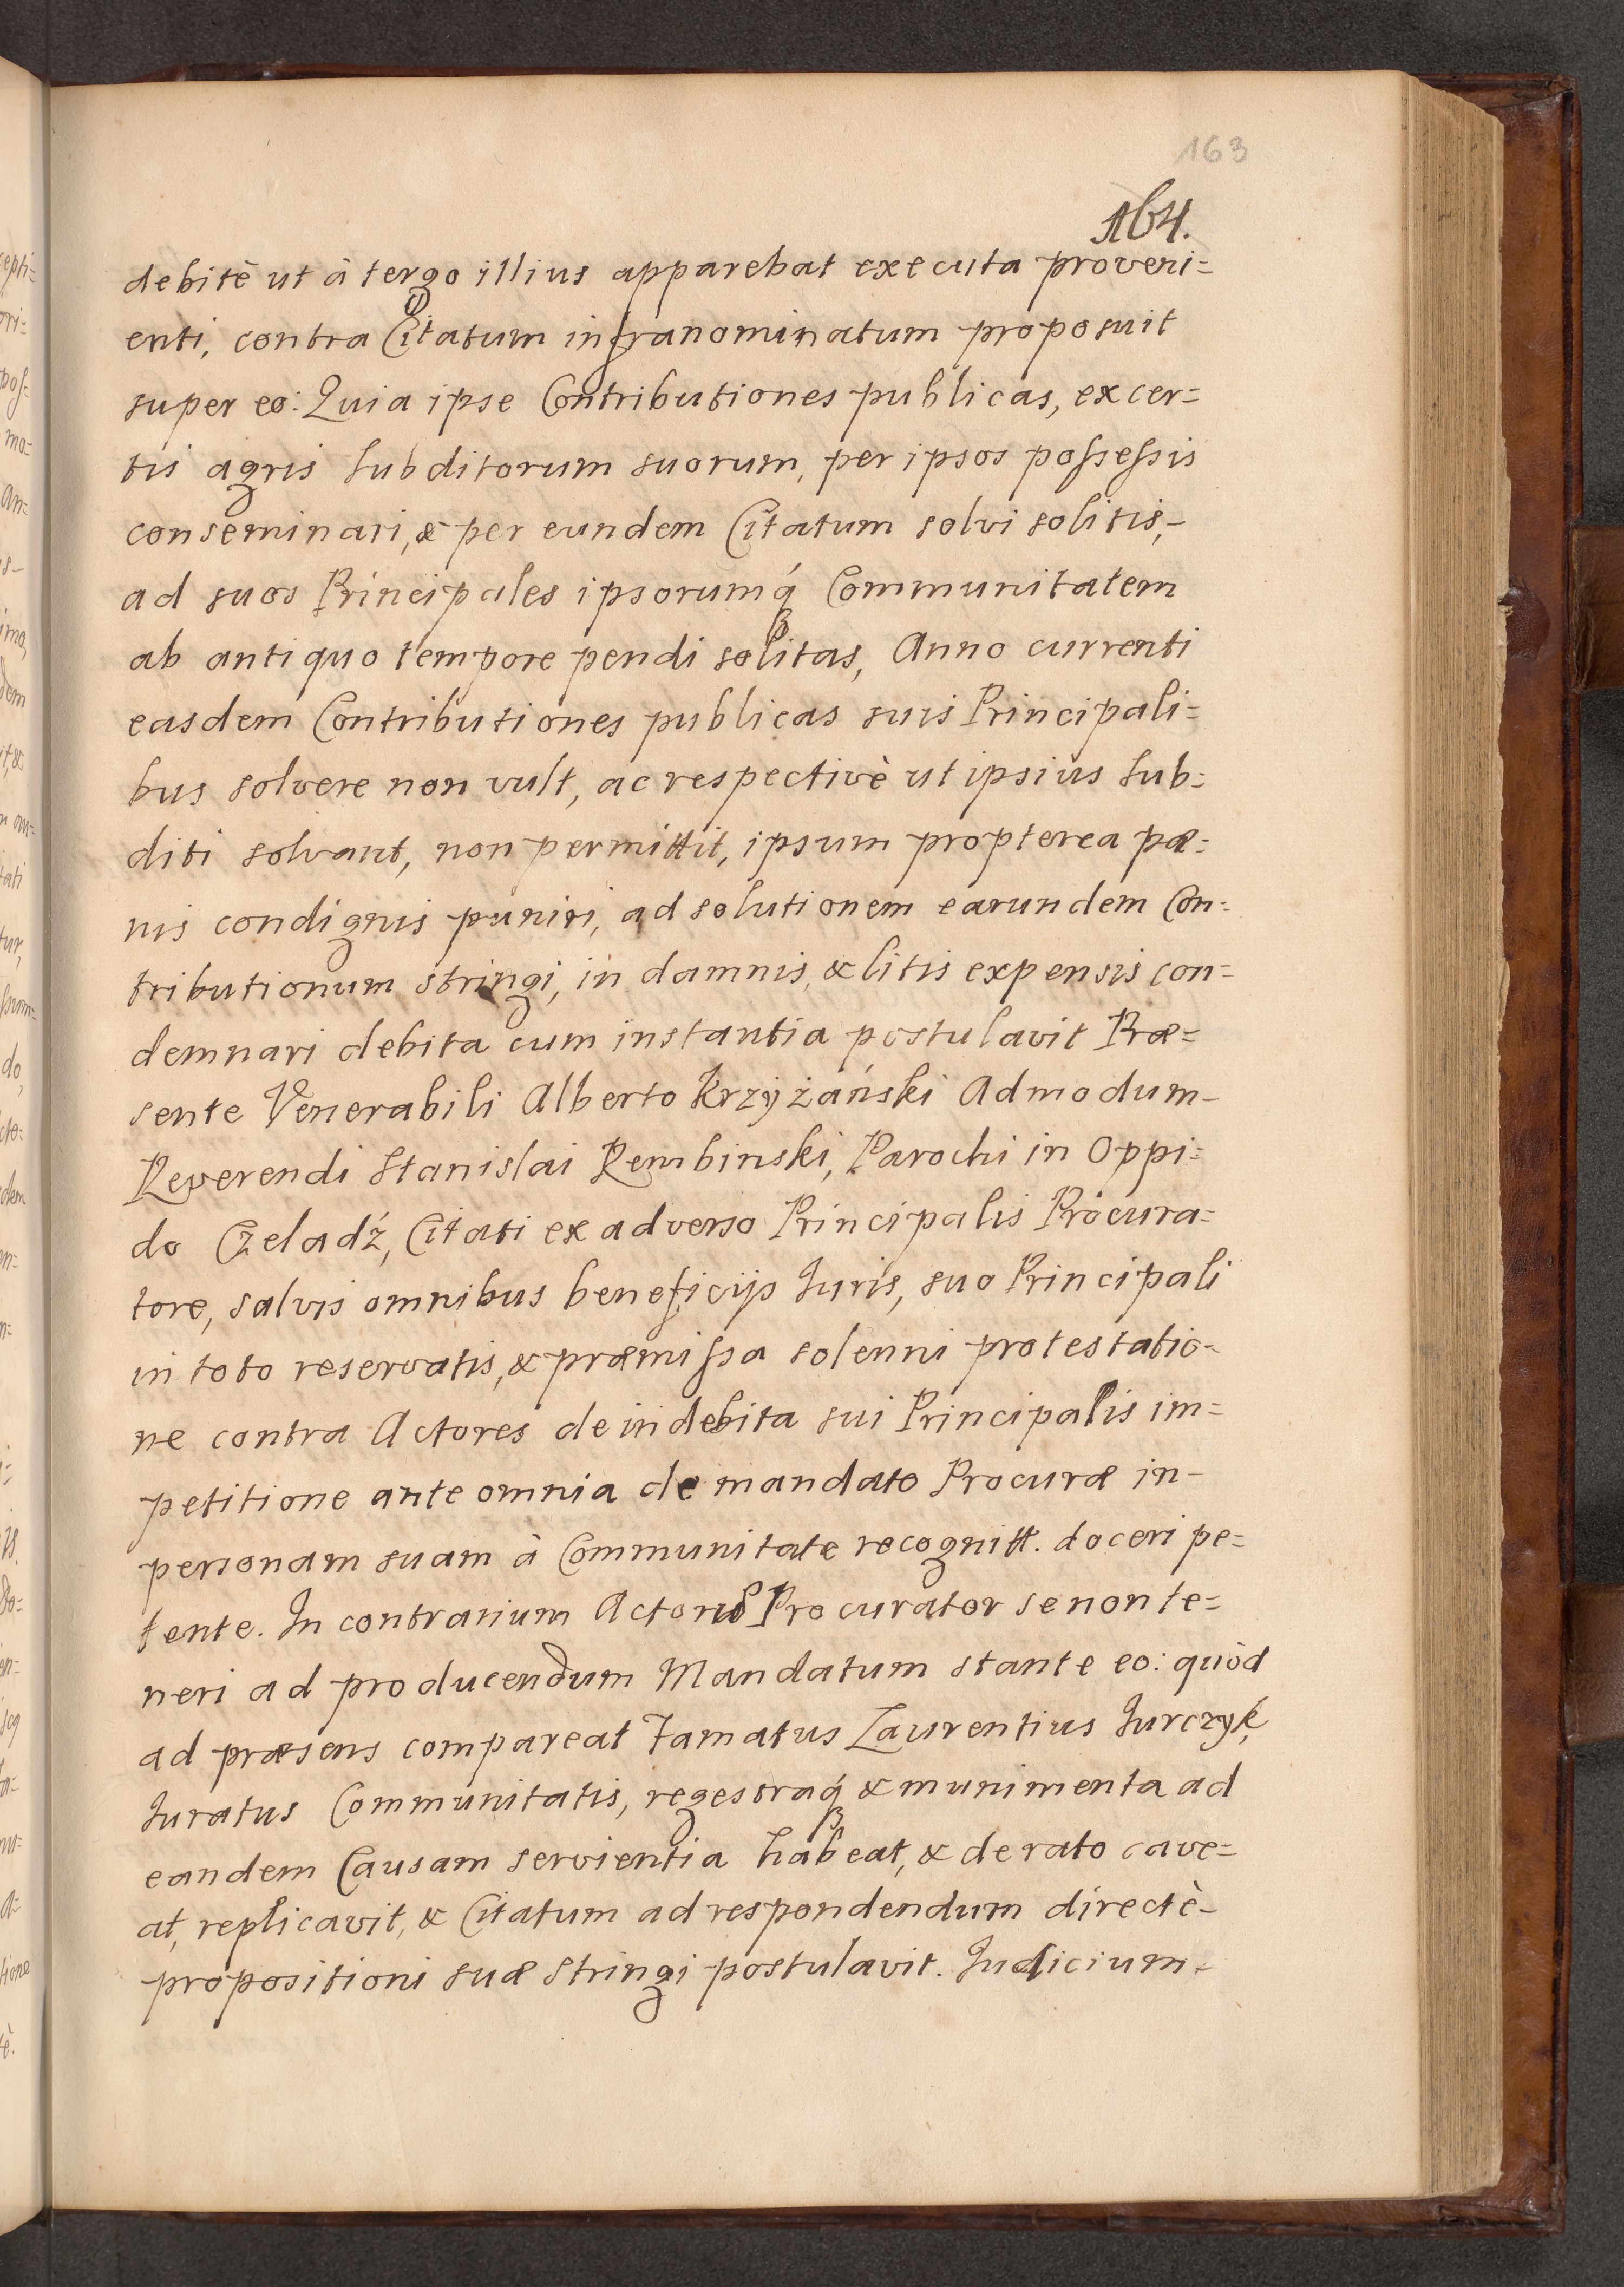 163
164.
debitè ut à tergo illius apparebat executa proveni=
enti, contra Citatum infranominatum proposuit
super eo: Quia ipse Contributiones publicas, ex cer=
tis agris Subditorum suorum, per ipsos possessis
conseminari, & per eundem Citatum solvi solitis,
ad suos Principales ipsorumq́ Communitatem
ab antiquo tempore pendi solitas, Anno currenti
easdem Contributiones publicas suis Principali=
bus solvere non vult, ac respectivè ut ipsius Sub=
diti solvant, non permittit, ipsum propterea pæ=
nis condignis puniri, ad solutionem earundem Con=
tributionum stringi, in damnis, & litis expensis con=
demnari debita cum instantia postulavit Præ=
sente Venerabili Alberto Krzyżański Admodum-
Reverendi Stanislai Rembinski, Parochi in Oppi=
do Czeladź, Citati ex adverso Principalis Procura=
tore, salvis omnibus beneficijs Juris, suo Principali
in toto reservatis, & præmissa solenni protestatio=
ne contra Actores de indebita sui Principalis im=
petitione ante omnia de mandato Procuræ in-
personam suam à Communitate recognitt. doceri pe=
tente. In contrarium Actorũ Procurator se non te=
neri ad producendum Mandatum stante eo: quòd
ad præsens compareat Famatus Laurentius Jurczyk,
Juratus Communitatis, regestraq́ & munimenta ad
eandem Causam servientia habeat, & de rato cave=
at, replicavit, & Citatum ad respondendum directè-
propositioni suæ stringi postulavit. Judicium-